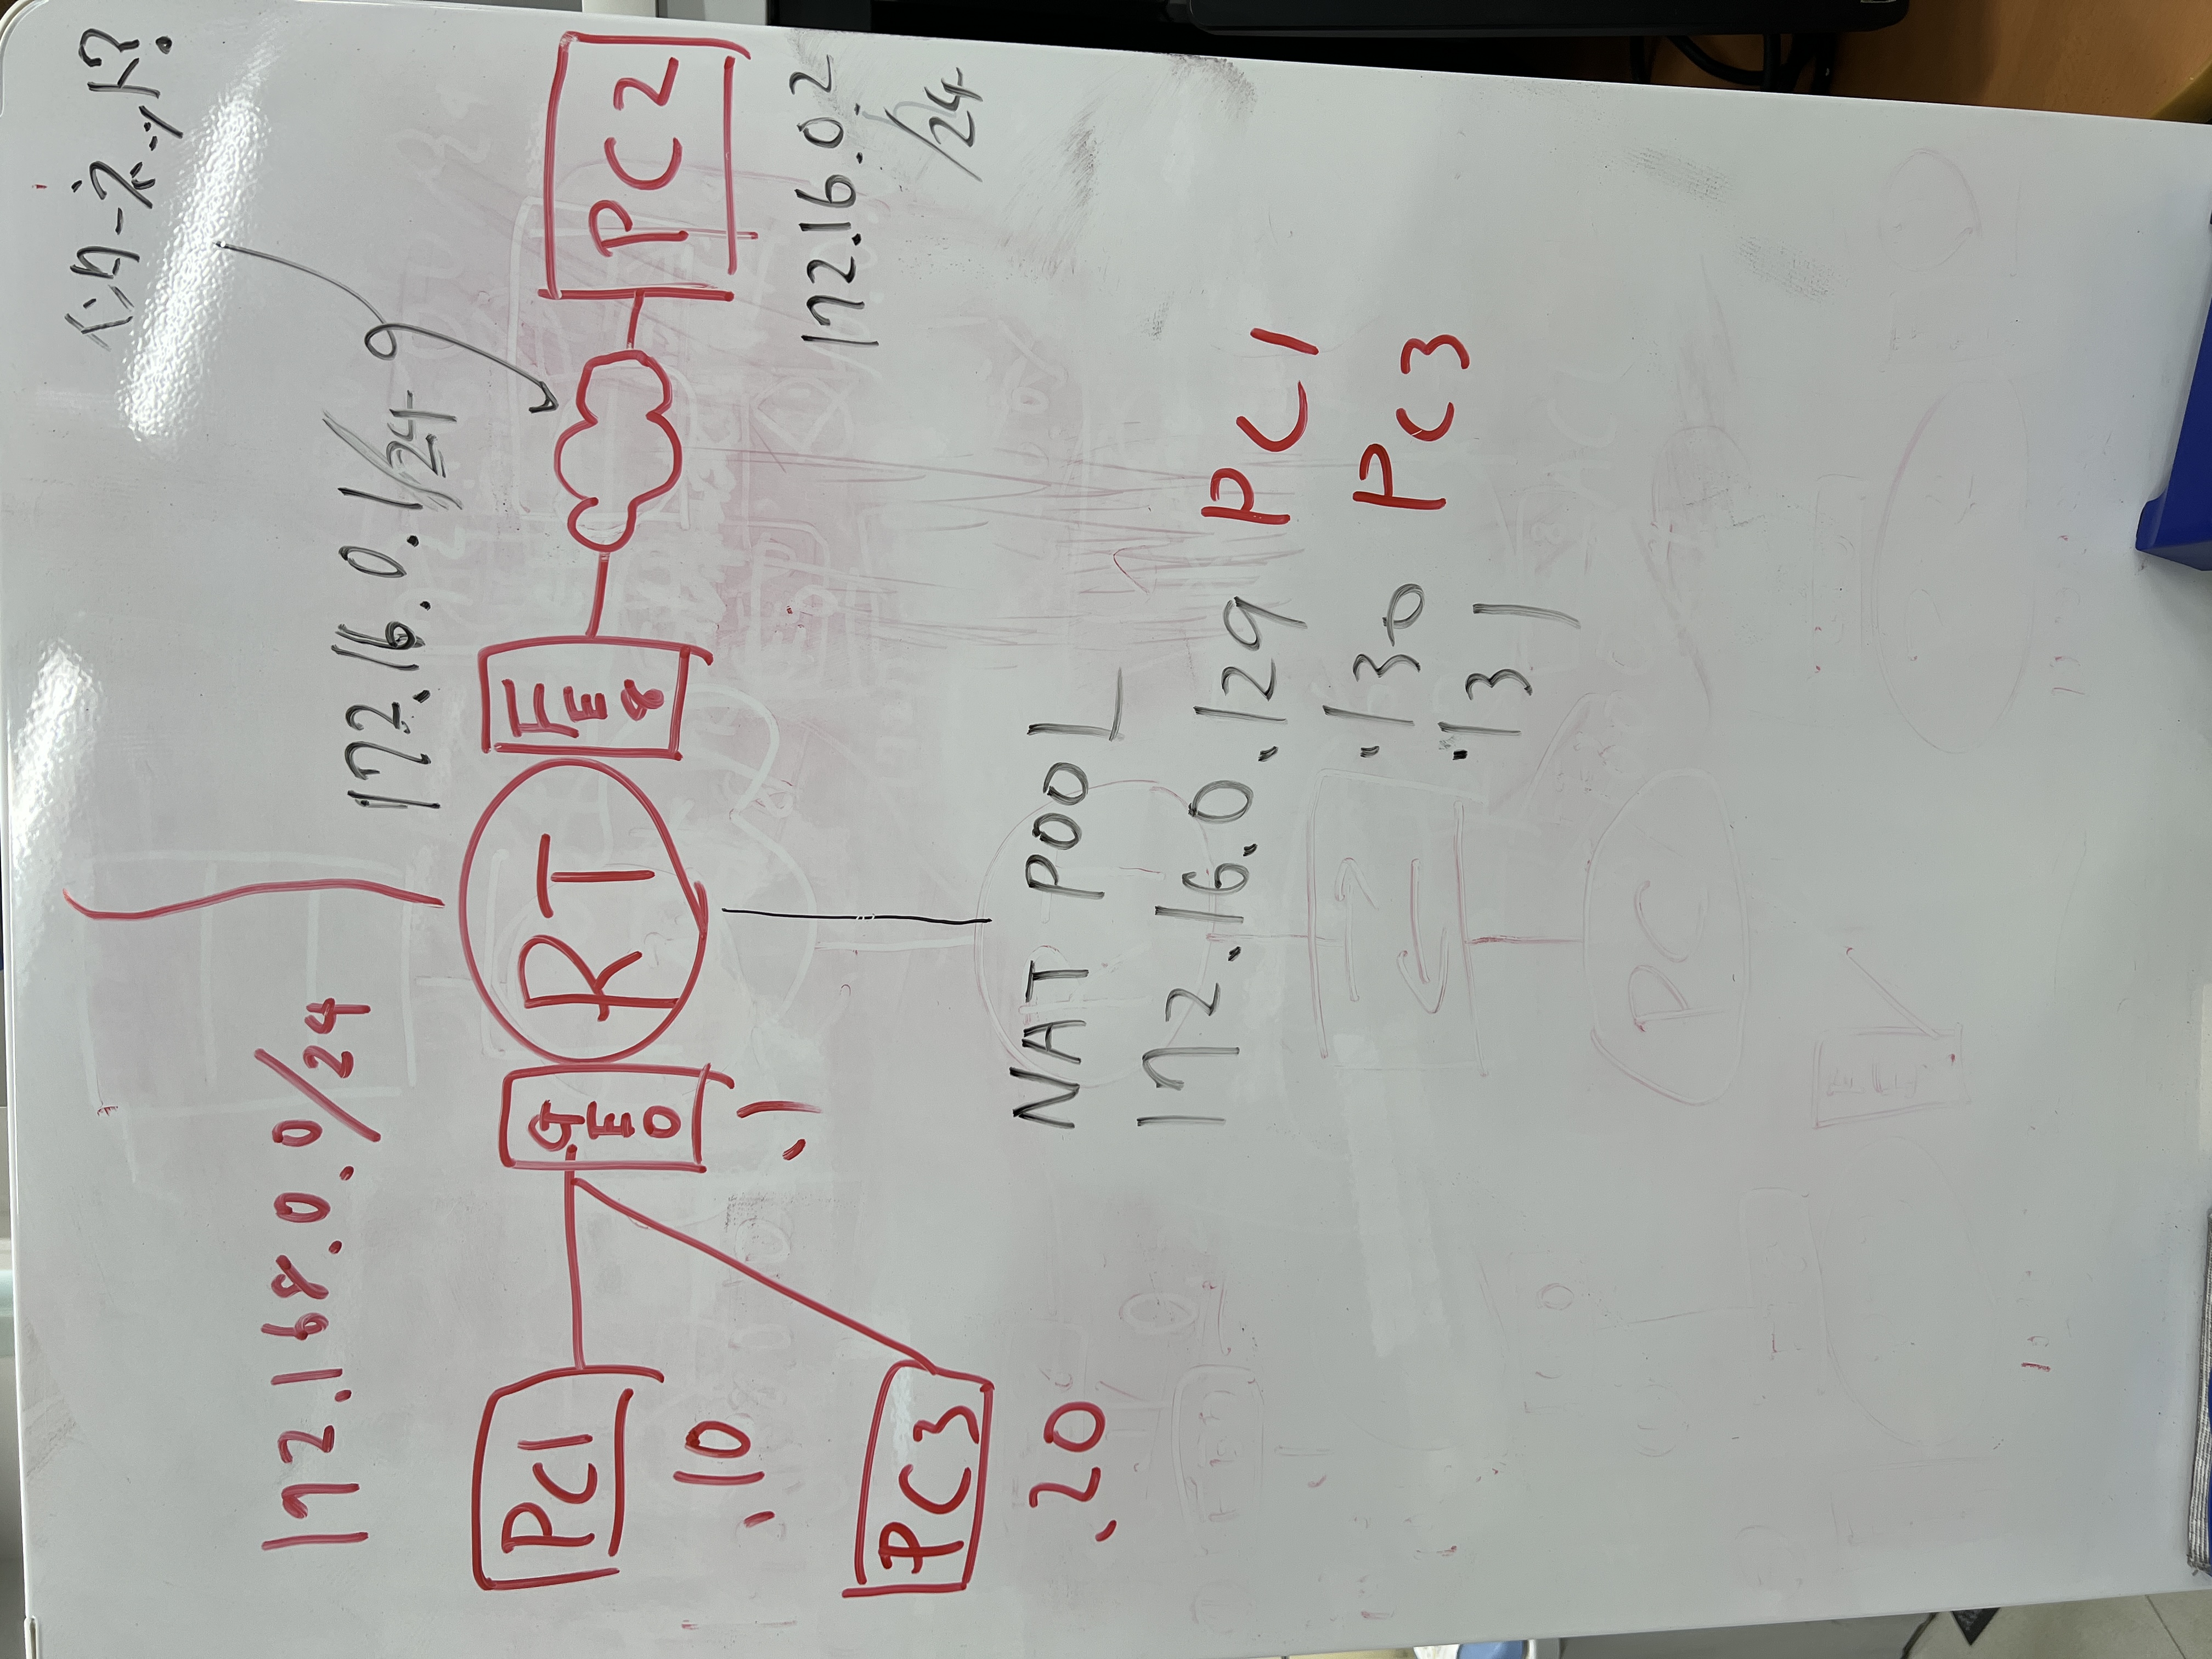 インターネット?
192.168.0.0/24
172.16.0.1/24
PC1
GE0
RT
FE8
PC2
.10
.1
172.16.0.2
/24
PC3
.20
NAT POOL
172.16.0.129 PC1
.130 PC3
.131
PC